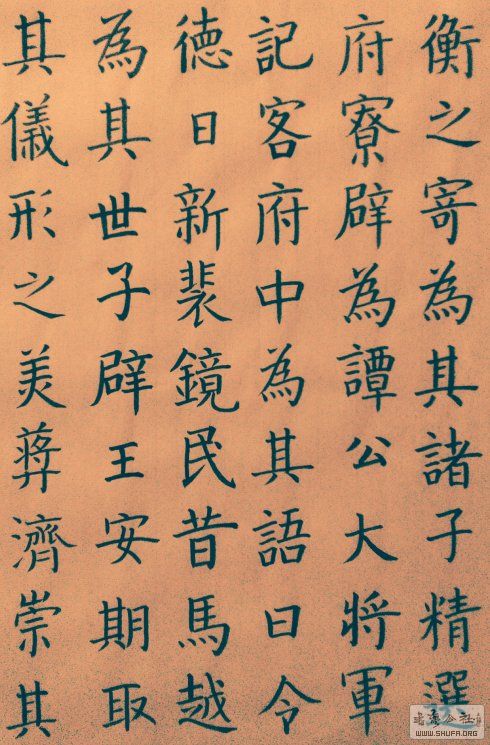 衡之寄為其諸子精選
府寮辟為譚公大將軍
記客府中為其語曰令
德日新裴鏡民昔馬越
為其世子辟王安期取
其儀形之美蔣濟崇其
WWW.SHUFA.ORG